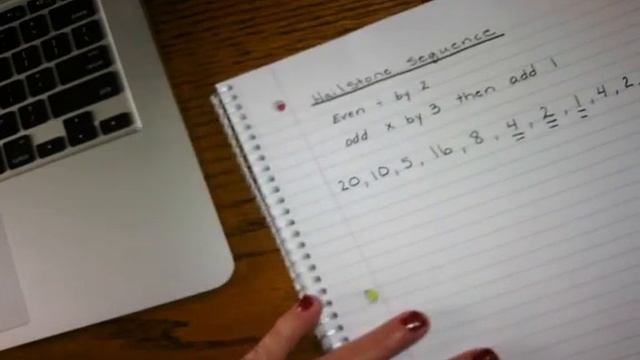 Hailstone Sequence
Even ÷ by 2
add x by 3 then add 1
20, 10, 5, 16, 8, 4, 2, 1, 4, 2,